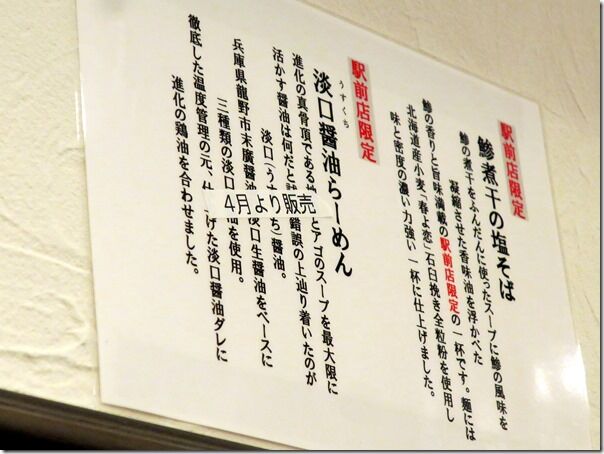 駅前店限定
鯵煮干の塩そば
鯵の煮干をふんだんに使ったスープに鯵の風味を
凝縮させた香味油を浮かべた
鯵の香りと旨味満載の駅前店限定の一杯です。麺には
北海道産小麦「春よ恋」石臼挽き全粒粉を使用し
味と密度の濃い力強い一杯に仕上げました。
駅前店限定
うすくち
淡口醤油らーめん
進化の真骨頂である とアゴのスープを最大限に
活かす醤油は何だと 錯誤の上辿り着いたのが
淡口(う ち)醤油。
兵庫県龍野市末廣醤 淡口生醤油をベースに
三種類の淡口 油を使用。
徹底した温度管理の元、 げた淡口醤油ダレに
進化の鶏油を合わせました。
4月より販売